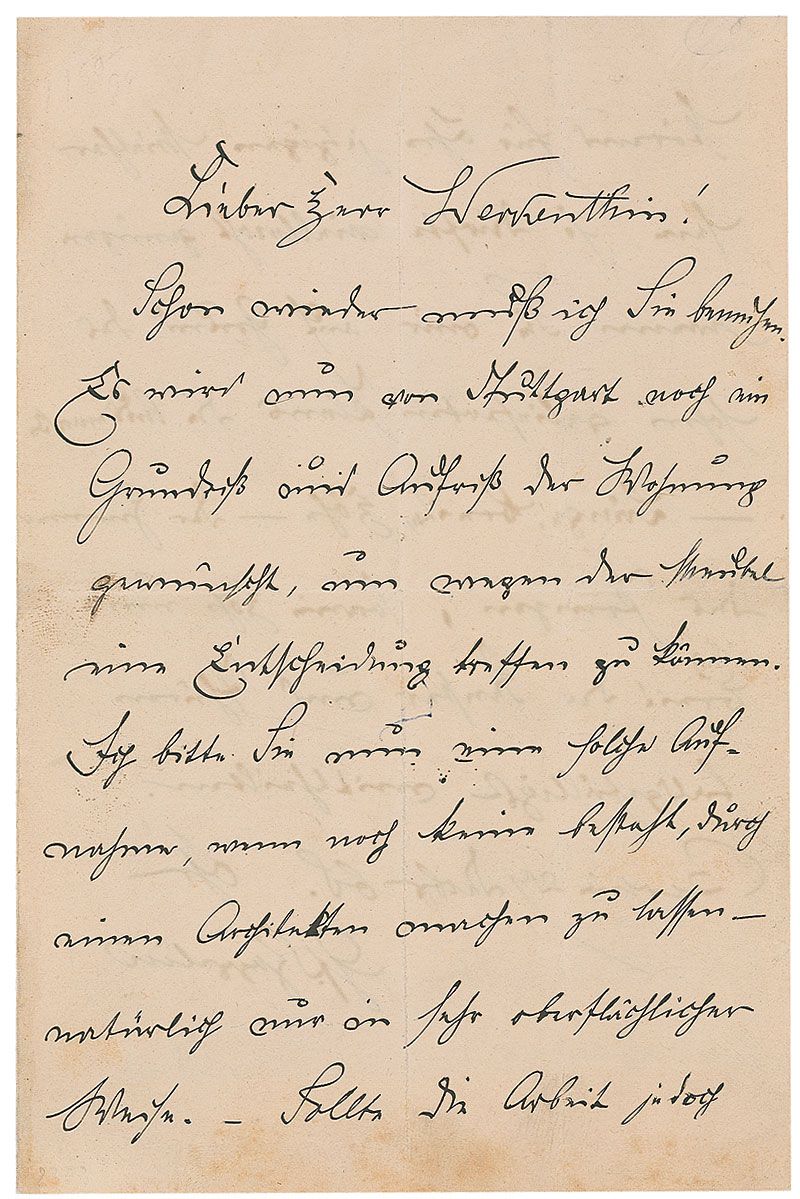 Lieber Herr Werkenthin!
Schon wieder muß ich Sie bemühen.
Es wird nun von Stuttgart noch ein
Grundriß und Aufriß der Wohnung
gewünscht, um wegen der Meubel
eine Entscheidung treffen zu können.
Ich bitte Sie nun eine solche Auf-
nahme, wenn noch keine besteht, durch
einen Architekten machen zu lassen –
natürlich nur in sehr oberflächlicher
Weise. – Sollte die Arbeit jedoch